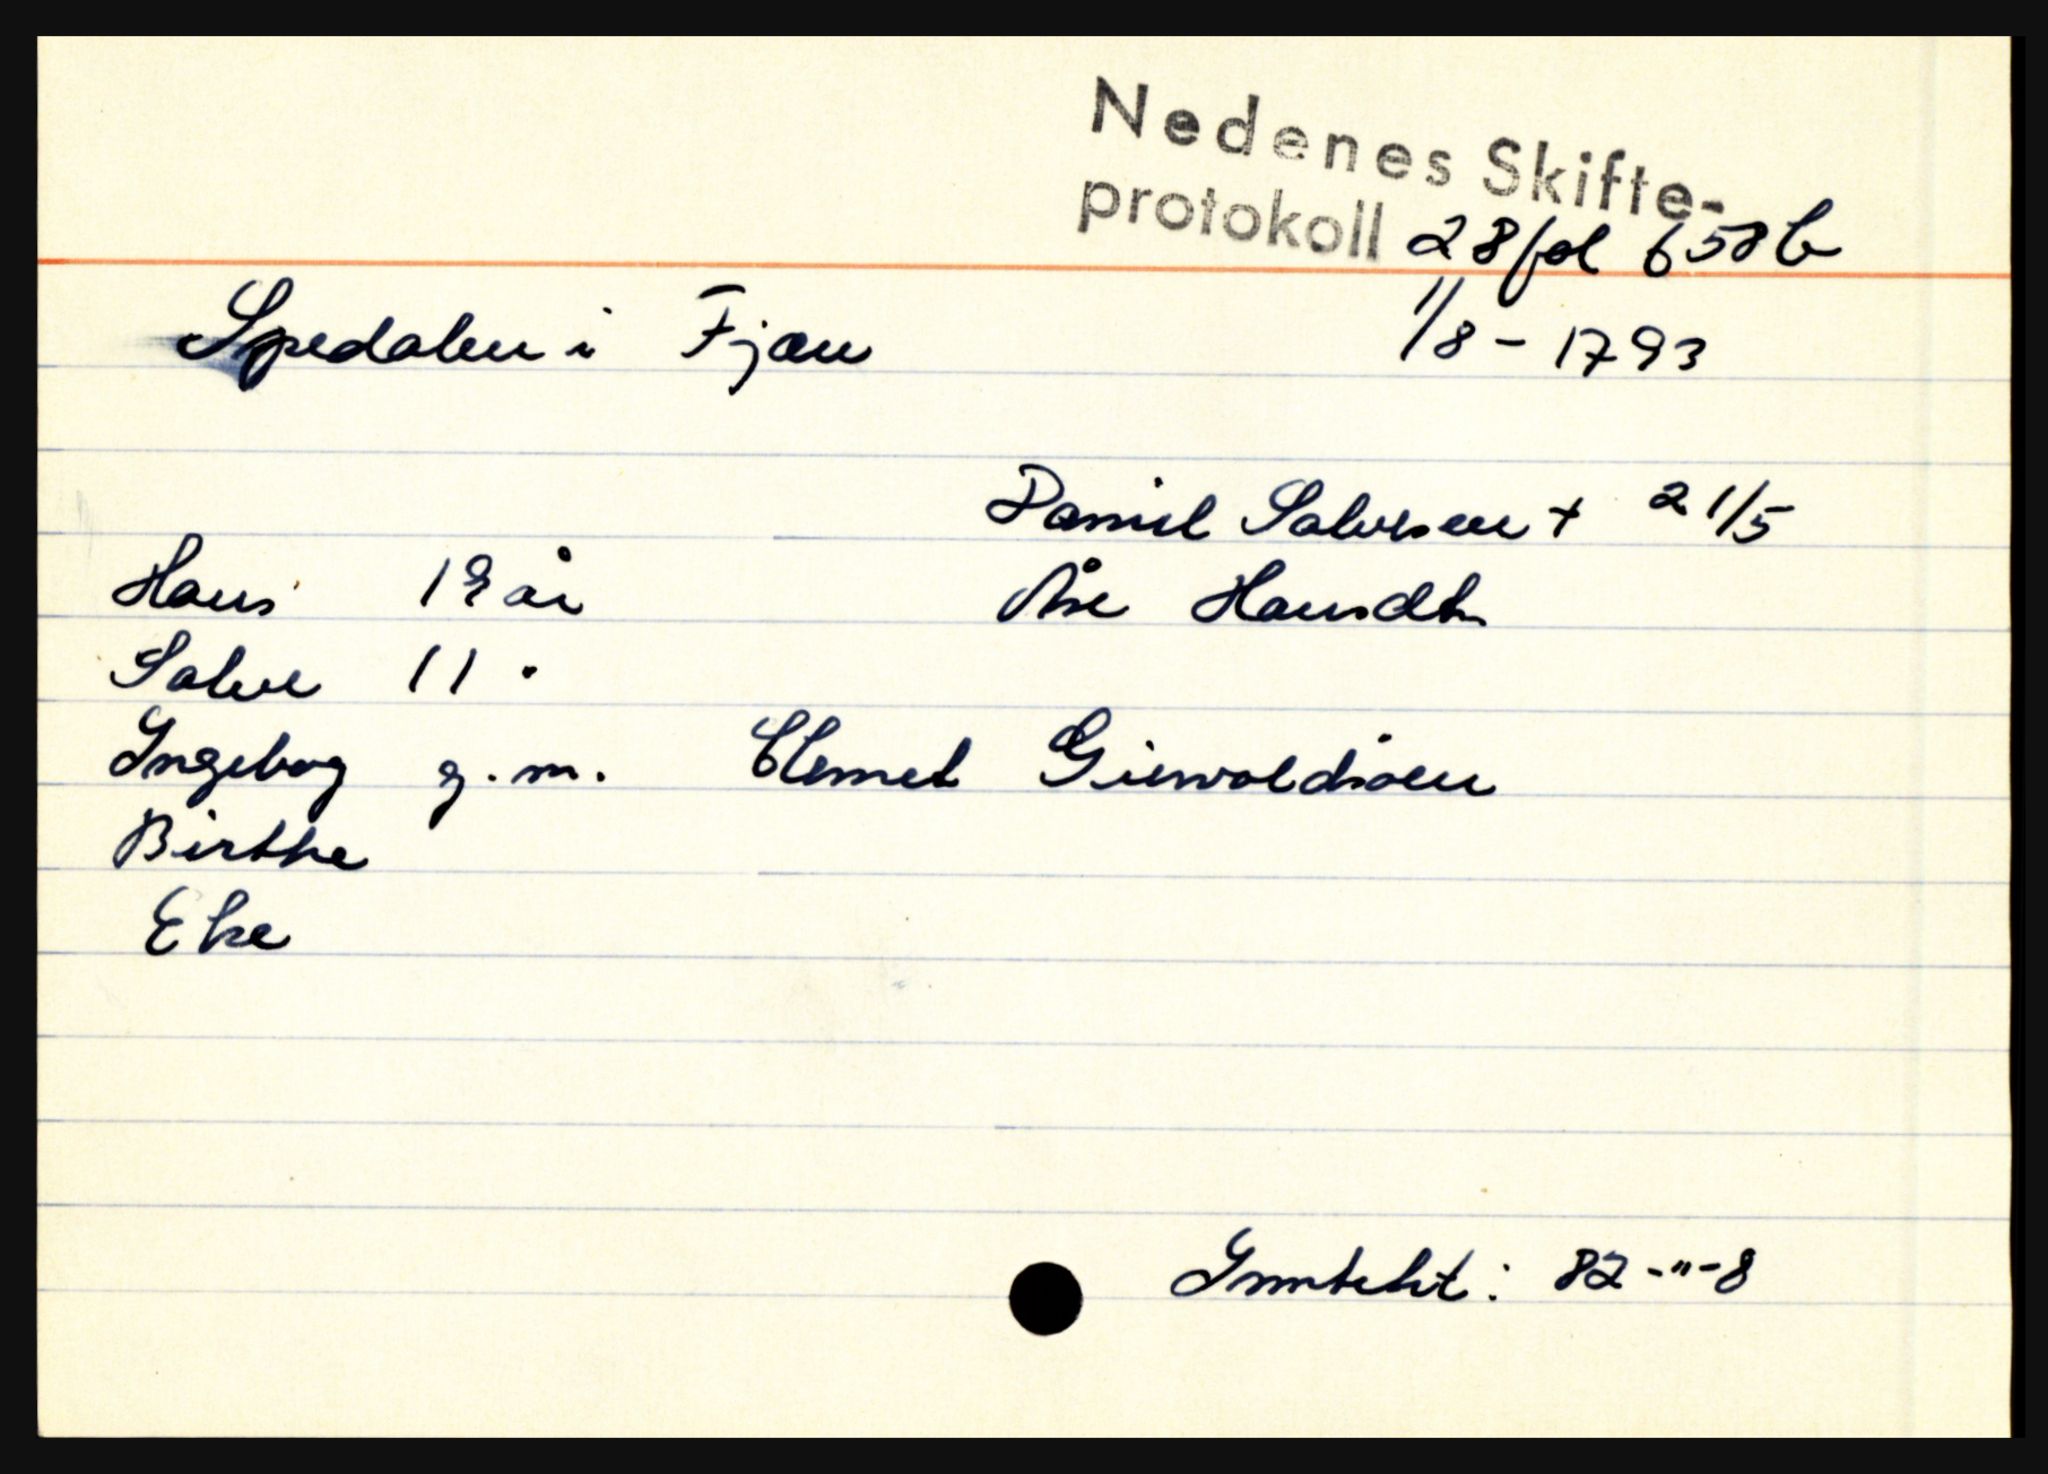 Nedenes Skifte-
protokoll 28 fol 658b
Spedalen i Fjære 1/8 - 1793
Daniel Salvesen + 21/5
Hans 19 år Åse Hansdtr
Salve 11 "
Ingeborg g.m. Clemet Giervoldsen
Birthe
Else
Inntekt: 82-"-8